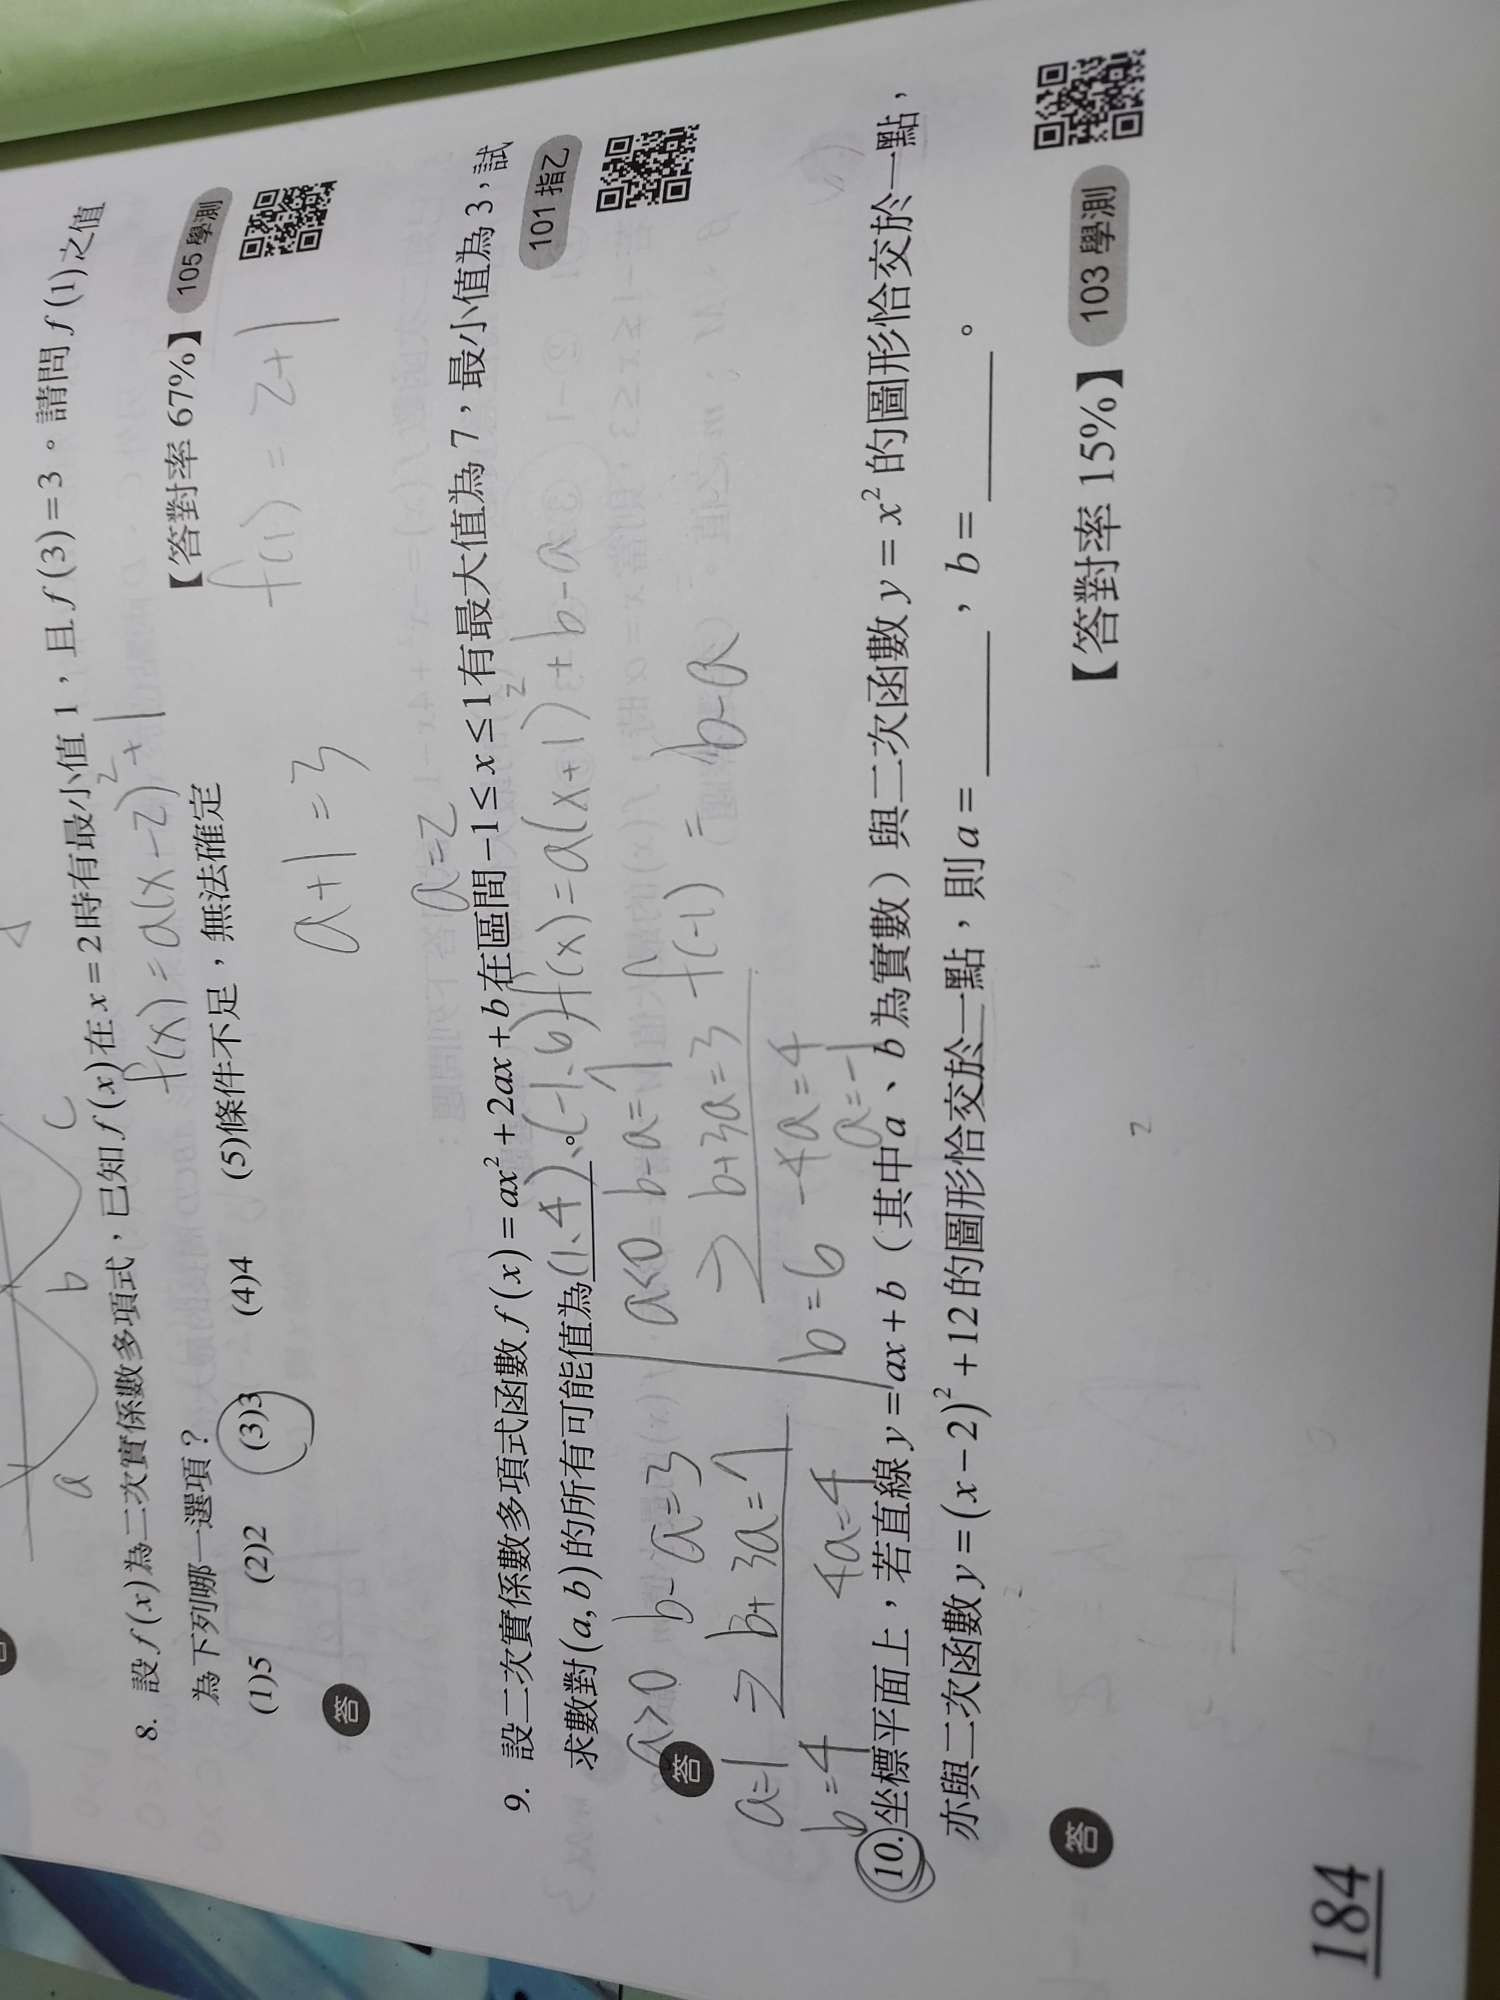 a b c
8. 設 f(x) 為二次實係數多項式，已知 f(x) 在 x = 2 時有最小值 1，且 f(3) = 3。請問 f(1) 之值
f(x) = a(x-2)²+1
為下列哪一選項？
(1)5 (2)2 (3)3 (4)4 (5)條件不足，無法確定
【答對率 67%】 105 學測
答
a+1=3
f(1) = 2+1
a=2
9. 設二次實係數多項式函數 f(x) = ax² + 2ax + b 在區間 -1 ≤ x ≤ 1 有最大值為 7，最小值為 3，試
求數對 (a, b) 的所有可能值為 (1、4)、(-1、6)。
101 指乙
f(x) = a(x+1)²+b-a
答
a>0 b-a=3
b+3a=7
4a=4
a=1
b=4
a<0 b-a=7
b+3a=3
-4a=4
a=-1
b=6
f(-1) = b-a
10. 坐標平面上，若直線 y = ax + b（其中 a、b 為實數）與二次函數 y = x² 的圖形恰交於一點，
亦與二次函數 y = (x - 2)² + 12 的圖形恰交於一點，則 a = ______，b = ______。
【答對率 15%】 103 學測
答
184